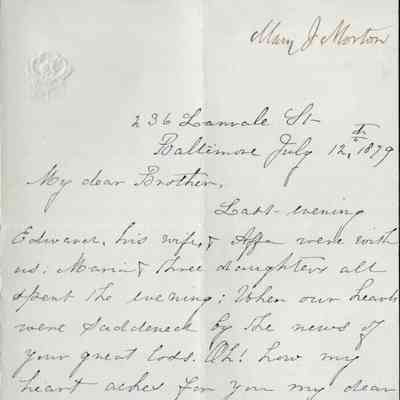 Mary J Morton
236 Lanvale St-
Baltimore July 12,th 1879
My dear Brother,
Last evening
Edward, his wife, & Affa were with
us: Maria & three daughters all
spent the evening; When our hearts
were saddened by the news of
your great loss. Oh! how my
heart aches for you my dear